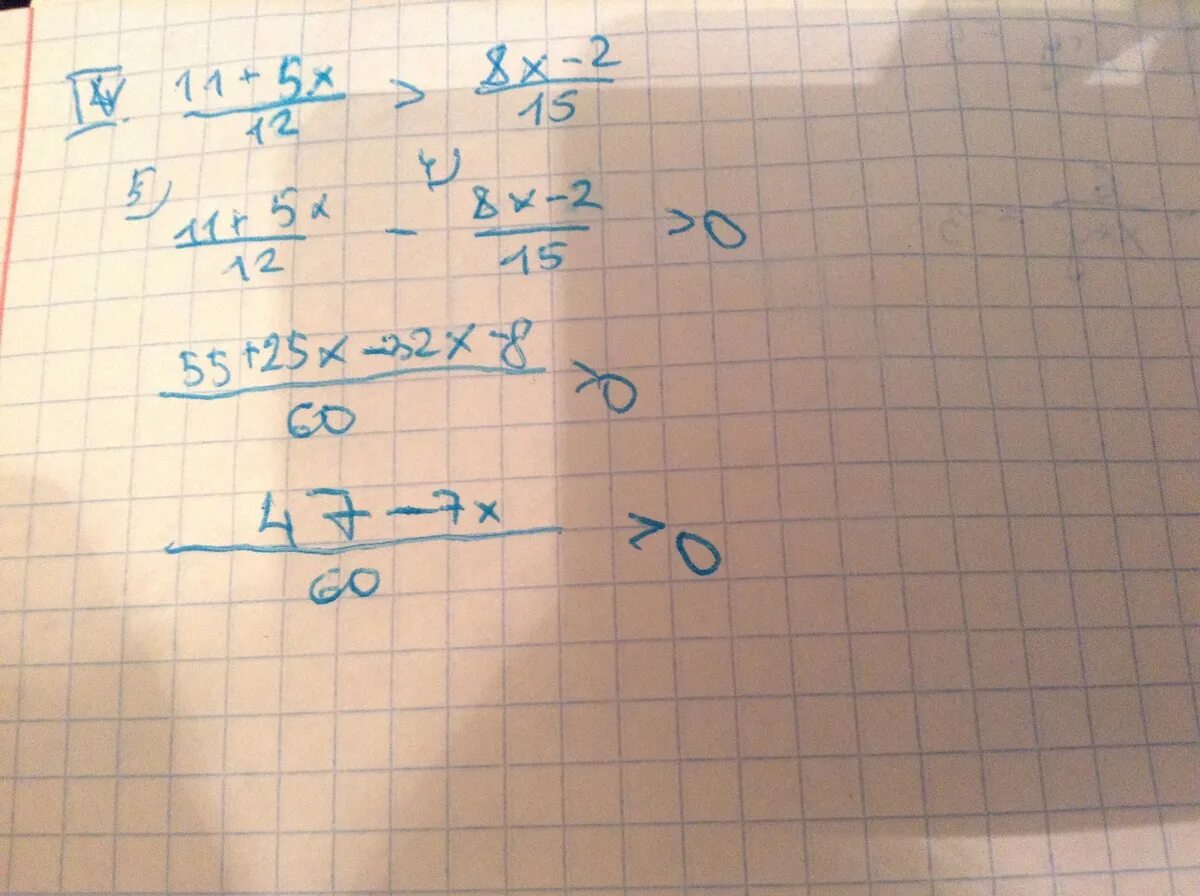 IV. 11+5x/12 > 8x-2/15
5) 11+5x/12 - 4) 8x-2/15 >0
55+25x-32x-8/60 >0
47-7x/60 >0